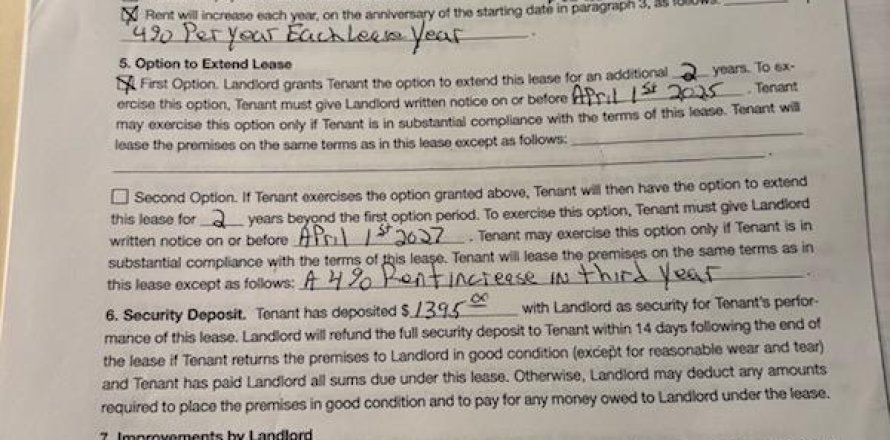 ☒ Rent will increase each year, on the anniversary of the starting date in paragraph 3, as follows:
4% Per year Each Lease Year.
5. Option to Extend Lease
☒ First Option. Landlord grants Tenant the option to extend this lease for an additional 2 years. To ex-
ercise this option, Tenant must give Landlord written notice on or before April 1st 2025. Tenant
may exercise this option only if Tenant is in substantial compliance with the terms of this lease. Tenant will
lease the premises on the same terms as in this lease except as follows:
.
☐ Second Option. If Tenant exercises the option granted above, Tenant will then have the option to extend
this lease for 2 years beyond the first option period. To exercise this option, Tenant must give Landlord
written notice on or before April 1st 2027. Tenant may exercise this option only if Tenant is in
substantial compliance with the terms of this lease. Tenant will lease the premises on the same terms as in
this lease except as follows: A 4% Rent increese in third Year.
6. Security Deposit. Tenant has deposited $ 1395 00 with Landlord as security for Tenant's perfor-
mance of this lease. Landlord will refund the full security deposit to Tenant within 14 days following the end of
the lease if Tenant returns the premises to Landlord in good condition (except for reasonable wear and tear)
and Tenant has paid Landlord all sums due under this lease. Otherwise, Landlord may deduct any amounts
required to place the premises in good condition and to pay for any money owed to Landlord under the lease.
7. Improvements by Landlord